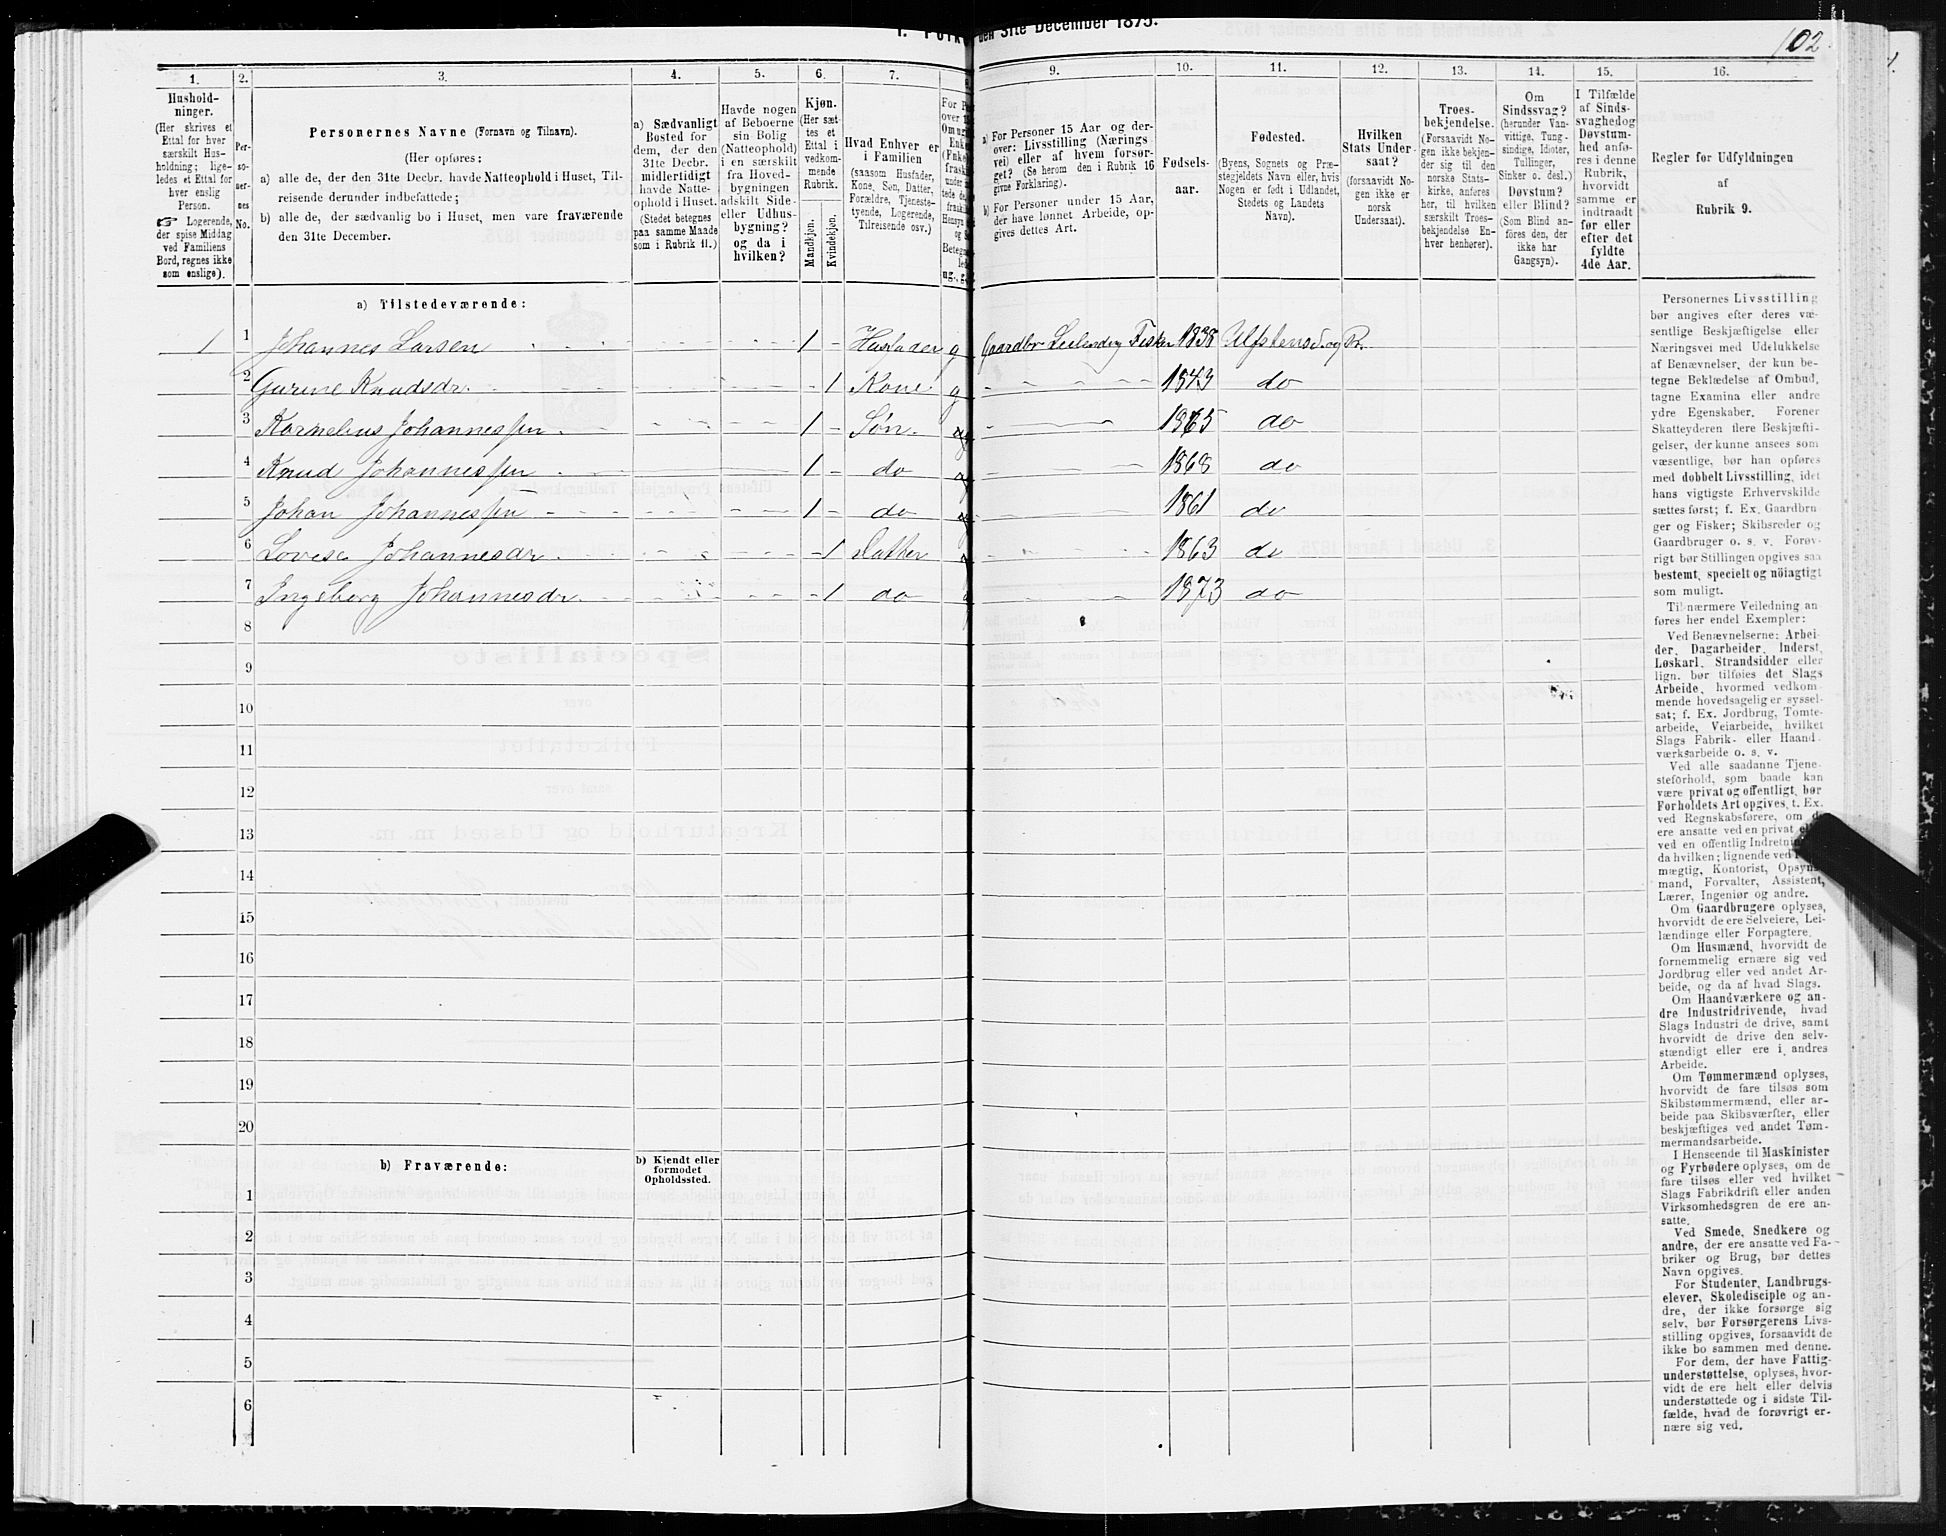 I. Folk den 31te December 1875.
102.
1. 2. 3. 4. 5. 6. 7. 9. 10. 11. 12. 13. 14. 15. 16.
Hushold-
ninger.
(Her skrives et
Ettal for hver
særskilt Hus-
holdning; lige-
ledes et Ettal for
hver enslig
Person.
☞ Logerende,
der spise Middag
ved Familiens
Bord, regnes ikke
som enslige).
Per-
so-
ner-
nes
No.
Personernes Navne (Fornavn og Tilnavn).
(Her opføres:
a) alle de, der den 31te Decbr. havde Natteophold i Huset, Til-
reisende derunder indbefattede;
b) alle de, der sædvanlig bo i Huset, men vare fraværende
den 31te December.
a) Sædvanligt
Bosted for
dem, der den
31te Decbr.
midlertidigt
havde Natte-
ophold i Huset.
(Stedet betegnes
paa samme Maade
som i Rubrik 11.)
Havde nogen
af Beboerne
sin Bolig
(Natteophold)
i en særskilt
fra Hoved-
bygningen
adskilt Side-
eller Udhus-
bygning?
og da i
hvilken?
Kjøn.
(Her sæt-
tes et
Ettal i
vedkom-
mende
Rubrik.
Mandkjøn.
Kvindekjøn.
Hvad Enhver er
i Familien
(saasom Husfader,
Kone, Søn, Datter,
Forældre, Tjeneste-
tyende, Logerende,
Tilreisende osv.)
a) For Personer 15 Aar og der-
over: Livsstilling (Nærings-
vei) eller af hvem forsør-
get? (Se herom den i Rubrik 16
givne Forklaring).
b) For Personer under 15 Aar,
der have lønnet Arbeide, op-
gives dettes Art.
Fødsels-
aar.
Fødested.
(Byens, Sognets og Præ-
stegjeldets Navn eller, hvis
Nogen er født i Udlandet,
Stedets og Landets
Navn).
Hvilken
Stats Under-
saat?
(forsaavidt No-
gen ikke er
norsk
Undersaat).
Troes-
bekjendelse.
(Forsaavidt No-
gen ikke bekjen-
der sig til den
norske Stats-
kirke, anføres
her, til hvilken
særskilt Troes-
bekjendelse En-
hver henhører).
Om
Sindssvag?
(herunder Van-
vittige, Tung-
sindige, Idioter,
Tullinger,
Sinker o. desl.)
Døvstum?
eller Blind?
(Som Blind an-
føres den, der
ikke har
Gangsyn).
I Tilfælde
af Sinds-
svaghedog
Døvstum-
hed anfø-
res i denne
Rubrik,
hvorvidt
samme er
indtraadt
før eller
efter det
fyldte
4de Aar.
Regler for Udfyldningen
af
Rubrik 9.
a) Tilstedeværende:
1 1 Johannes Larsen 1 Husfader g Gaardbr Leilending Fisker 1838 Ulfstens S. og Pr.
2 Gurine Knudsdr. 1 Kone g 1843 do
3 Kornelius Johannessen 1 Søn 1865 do
4 Knud Johannessen 1 do 1868 do
5 Johan Johannessen 1 do 1861 do
6 Lovise Johannesdr. 1 Datter 1863 do
7 Ingeborg Johannesdr. 1 do 1873 do
8
9
10
11
12
13
14
15
16
17
18
19
20
b) Fraværende:
b) Kjendt eller
formodet
Opholdssted.
1
2
3
4
5
6
Personernes Livsstilling
bør angives efter deres væ-
sentlige Beskjæftigelse eller
Næringsvei med Udelukkelse
af Benævnelser, der kun be-
tegne Beklædelse af Ombud,
tagne Examina eller andre
ydre Egenskaber. Forener
Skatteyderen flere Beskjæfti-
gelser, der kunne ansees som
væsentlige, bør han opføres
med dobbelt Livsstilling, idet
hans vigtigste Erhvervskilde
sættes først; f. Ex. Gaardbru-
ger og Fisker; Skibsreder og
Gaardbruger o. s. v. Forøv-
rigt bør Stillingen opgives saa
bestemt, specielt og nöiagtigt
som muligt.
Til nærmere Veiledning an-
føres her endel Exempler:
Ved Benævnelserne: Arbei-
der, Dagarbeider, Inderst,
Løskarl, Strandsidder eller
lign. bør tilføies det Slags
Arbeide, hvormed vedkom-
mende hovedsagelig er syssel-
sat; f. Ex. Jordbrug, Tomte-
arbeide, Veiarbeide, hvilket
Slags Fabrik- eller Haand-
værksarbeide o. s. v.
Ved alle saadanne Tjene-
steforhold, som baade kan
være privat og offentligt, bør
Forholdets Art opgives, t. Ex.
ved Regnskabsførere, om de
ere ansatte ved en privat
ved en offentlig
da hvilken; lignende ved
mægtig, Kontorist, Opsyns-
mand, Forvalter, Assistent,
Lærer, Ingeniør og andre.
Om Gaardbrugere oplyses,
hvorvidt de ere Selveiere, Lei-
lændinge eller Forpagtere.
Om Husmænd, hvorvidt de
fornemmelig ernære sig ved
Jordbrug eller ved andet Ar-
beide, og da af hvad Slags.
Om Haandværkere og an-
dre Industridrivende, hvad
Slags Industri de drive, samt
hvorvidt de drive den selv-
stændigt eller ere i andres
Arbeide.
Om Tømmermænd oplyses,
hvorvidt de fare tilsøs som
Skibstømmermænd, eller ar-
beide paa Skibsværfter, eller
beskjæftiges ved andet Tøm-
mermandsarbeide.
I Henseende til Maskinister
og Fyrbødere oplyses, om de
fare tilsøs eller ved hvilket
Slags Fabrikdrift eller anden
Virksomhedsgren de ere an-
satte.
Ved Smede, Snedkere og
andre, der ere ansatte ved Fa-
briker og Brug, bør dettes
Navn opgives.
For Studenter, Landbrugs-
elever, Skoledisciple og an-
dre, der ikke forsørge sig
selv, bør Forsørgerens Livs-
stilling opgives, forsaavidt de
ikke bo sammen med denne.
For dem, der have Fattig-
understøttelse, oplyses, hvor-
vidt de ere helt eller delvis
understøttede og i sidste Til-
fælde, hvad de forøvrigt er-
nære sig ved.